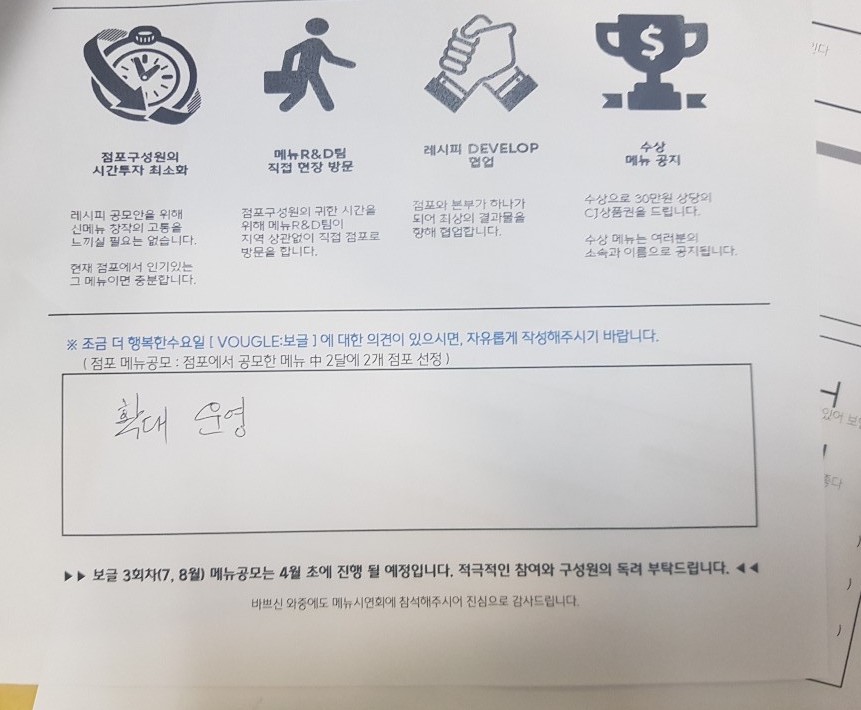 점포구성원의
시간투자 최소화
레시피 공모안을 위해
신메뉴 창작의 고통을
느끼실 필요는 없습니다.
현재 점포에서 인기있는
그 메뉴이면 충분합니다.
메뉴R&D팀
직접 현장 방문
점포구성원의 귀한 시간을
위해 메뉴R&D팀이
지역 상관없이 직접 점포로
방문을 합니다.
레시피 DEVELOP
협업
점포와 본부가 하나가
되어 최상의 결과물을
향해 협업합니다.
$
수상
메뉴 공지
수상으로 30만원 상당의
CJ상품권을 드립니다.
수상 메뉴는 여러분의
소속과 이름으로 공지됩니다.
※ 조금 더 행복한수요일 [ VOUGLE:보글 ] 에 대한 의견이 있으시면, 자유롭게 작성해주시기 바랍니다.
( 점포 메뉴공모 : 점포에서 공모한 메뉴 中 2달에 2개 점포 선정 )
확대 운영
▶▶ 보글 3회차(7, 8월) 메뉴공모는 4월 초에 진행 될 예정입니다. 적극적인 참여와 구성원의 독려 부탁드립니다. ◀◀
바쁘신 와중에도 메뉴시연회에 참석해주시어 진심으로 감사드립니다.
있어
좋다